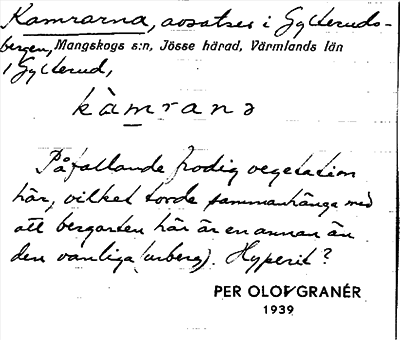 Kamrarna, avsatser i Gylteruds-
bergen, Mangskogs s:n, Jösse härad, Värmlands län
i Gylterud,
kàmrana
Påfallande frodig vegetation
här, vilket torde sammanhänga med
att bergarten här är en annan än
den vanliga (urberg). Hyperit?
PER OLOF GRANÉR
1939